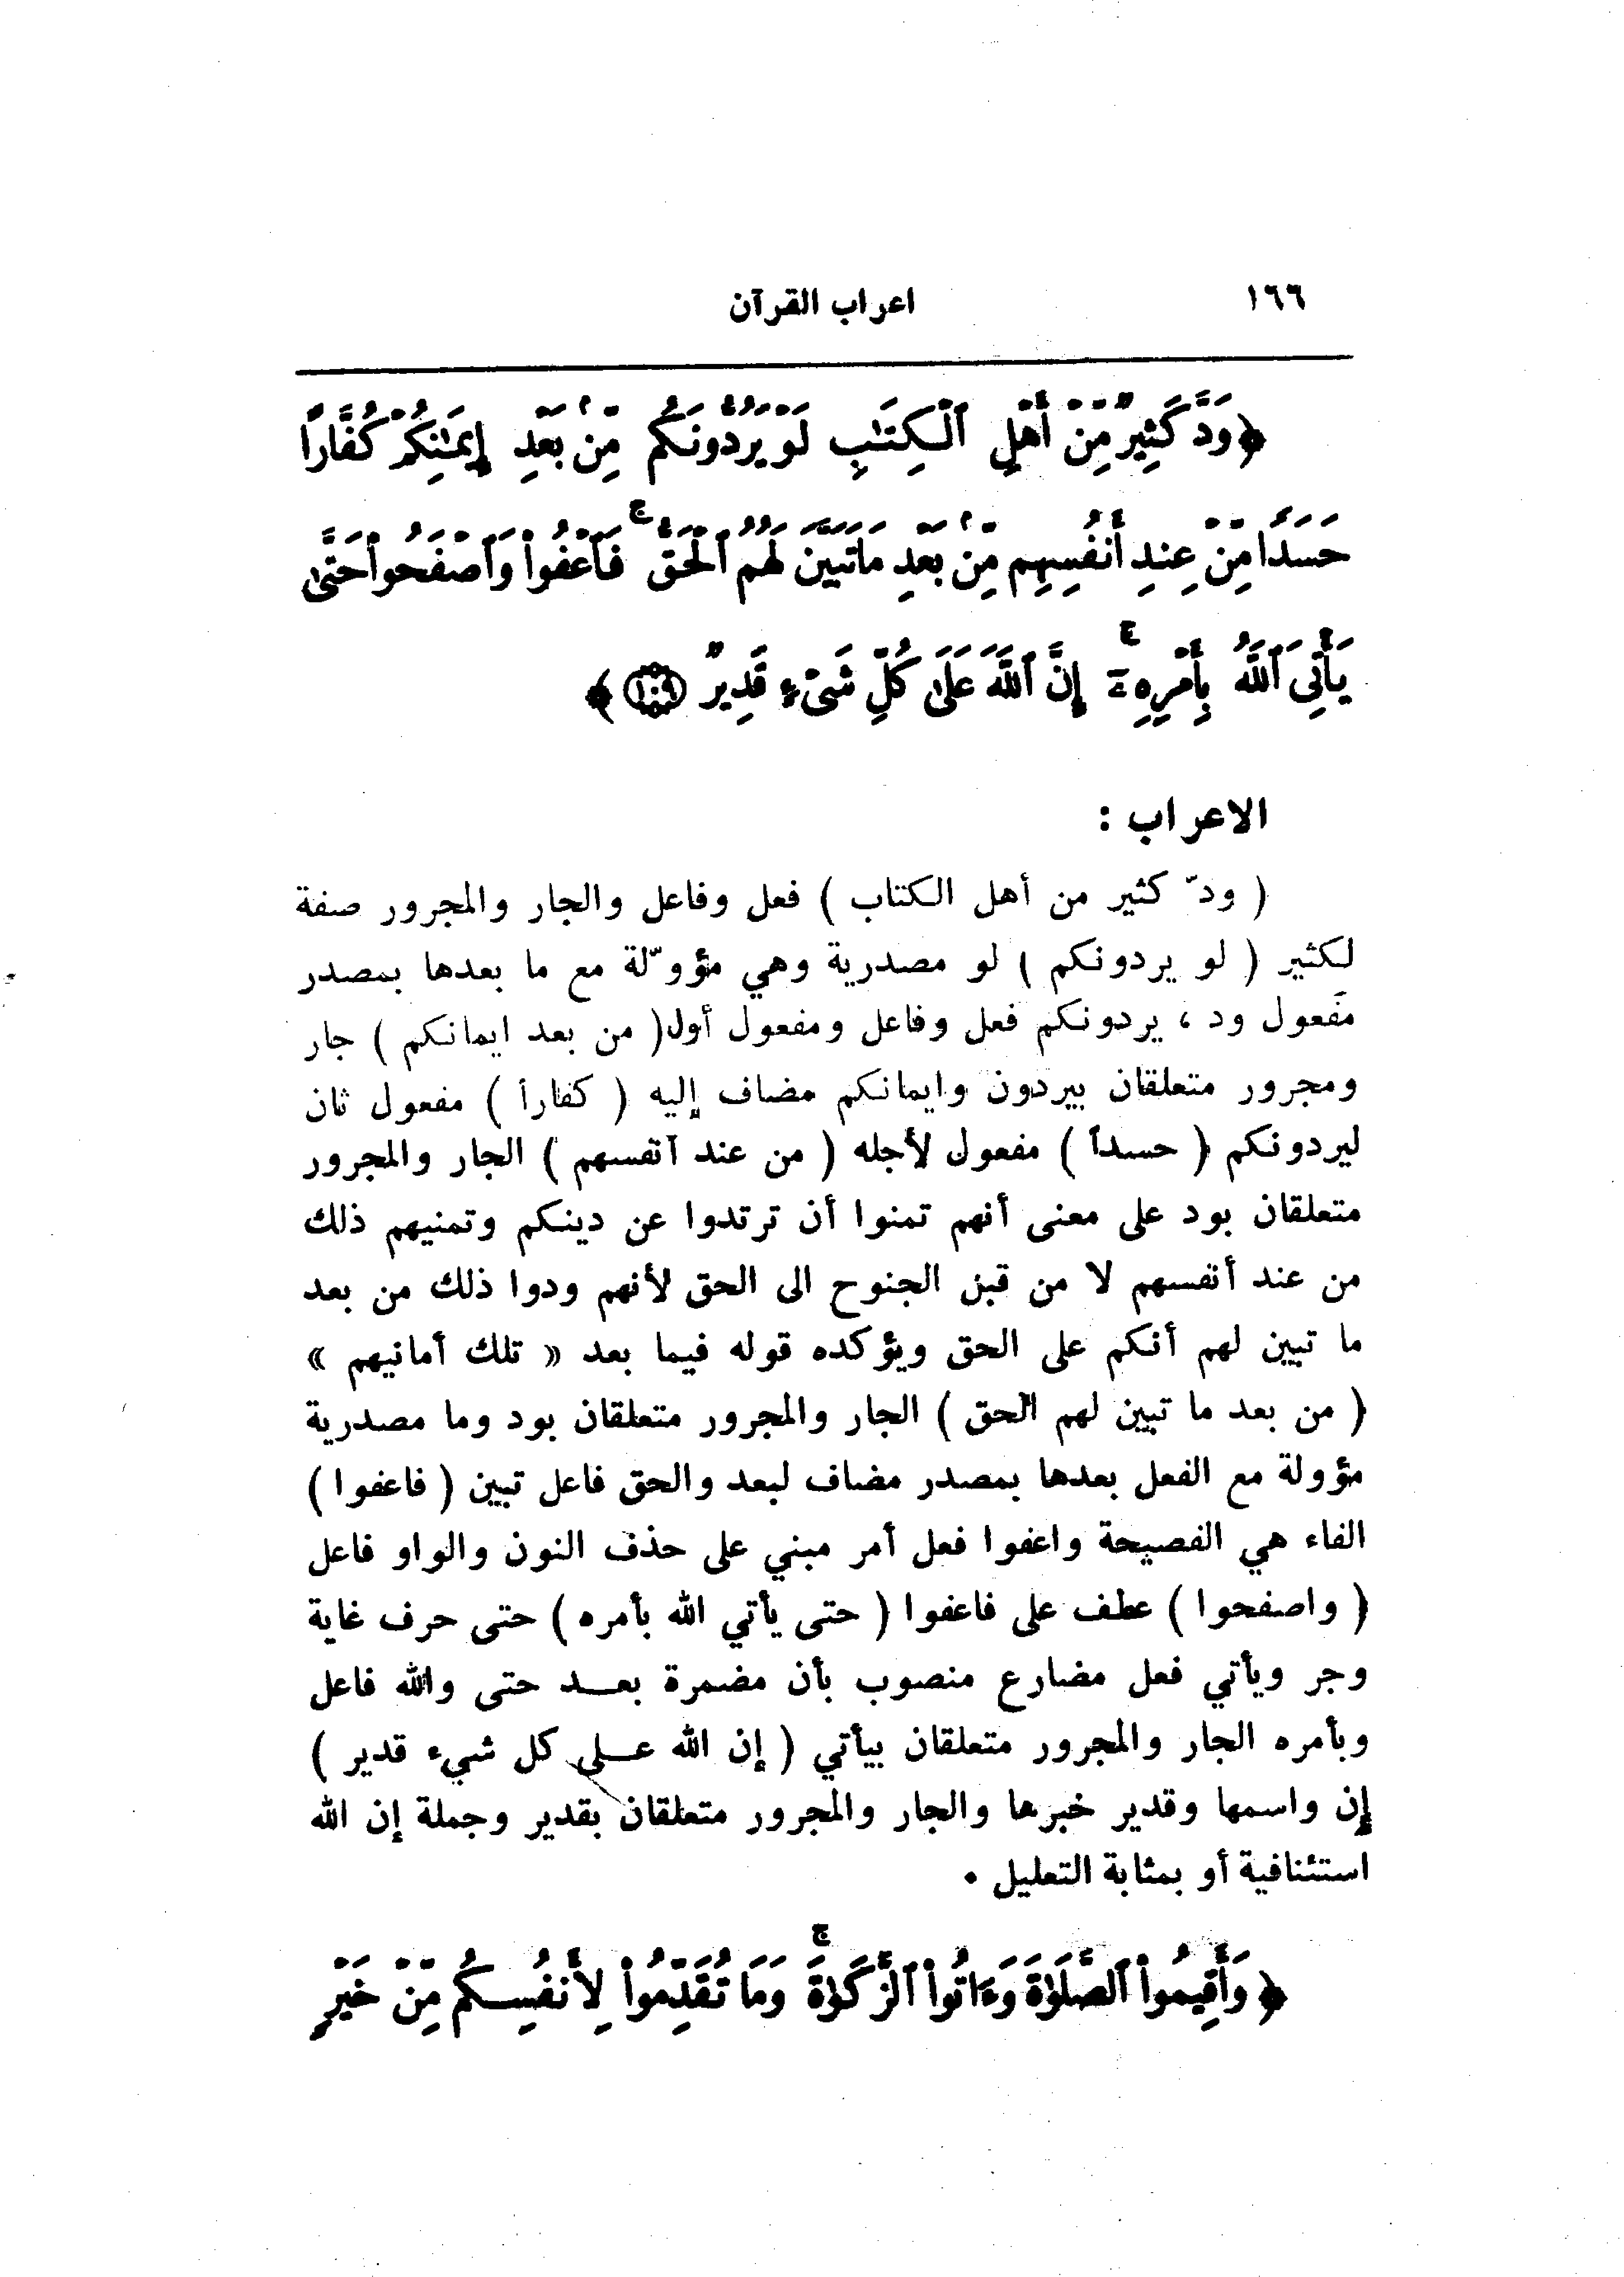 ١٦٦ اعراب القرآن
﴿ وَدَّ كَثِيرٌ مِّنْ أَهْلِ ٱلْكِتَٰبِ لَوْ يَرُدُّونَكُم مِّنۢ بَعْدِ إِيمَٰنِكُمْ كُفَّارًا
حَسَدًا مِّنْ عِندِ أَنفُسِهِم مِّنۢ بَعْدِ مَا تَبَيَّنَ لَهُمُ ٱلْحَقُّ ۖ فَٱعْفُوا۟ وَٱصْفَحُوا۟ حَتَّىٰ
يَأْتِىَ ٱللَّهُ بِأَمْرِهِۦٓ ۗ إِنَّ ٱللَّهَ عَلَىٰ كُلِّ شَىْءٍ قَدِيرٌ ١٠٩ ﴾
الاعراب :
( ودّ كثير من أهل الكتاب ) فعل وفاعل والجار والمجرور صفة
لكثير ( لو يردونكم ) لو مصدرية وهي مؤوّلة مع ما بعدها بمصدر
مفعول ود ، يردونكم فعل وفاعل ومفعول أول( من بعد ايمانكم ) جار
ومجرور متعلقان بيردون وايمانكم مضاف إليه ( كفاراً ) مفعول ثان
ليردونكم ( حسداً ) مفعول لأجله ( من عند أنفسهم ) الجار والمجرور
متعلقان بود على معنى أنهم تمنوا أن ترتدوا عن دينكم وتمنيهم ذلك
من عند أنفسهم لا من قبل الجنوح الى الحق لأنهم ودوا ذلك من بعد
ما تبين لهم أنكم على الحق ويؤكده قوله فيما بعد « تلك أمانيهم »
( من بعد ما تبين لهم الحق ) الجار والمجرور متعلقان بود وما مصدرية
مؤولة مع الفعل بعدها بمصدر مضاف لبعد والحق فاعل تبين ( فاعفوا )
الفاء هي الفصيحة واعفوا فعل أمر مبني على حذف النون والواو فاعل
( واصفحوا ) عطف على فاعفوا ( حتى يأتي الله بأمره ) حتى حرف غاية
وجر ويأتي فعل مضارع منصوب بأن مضمرة بعـــد حتى والله فاعل
وبأمره الجار والمجرور متعلقان بيأتي ( إن الله عـــلى كل شيء قدير )
إن واسمها وقدير خبرها والجار والمجرور متعلقان بقدير وجملة إن الله
استئنافية أو بمثابة التعليل ٠
﴿ وَأَقِيمُوا۟ ٱلصَّلَوٰةَ وَءَاتُوا۟ ٱلزَّكَوٰةَ ۚ وَمَا تُقَدِّمُوا۟ لِأَنفُسِكُم مِّنْ خَيْرٍ